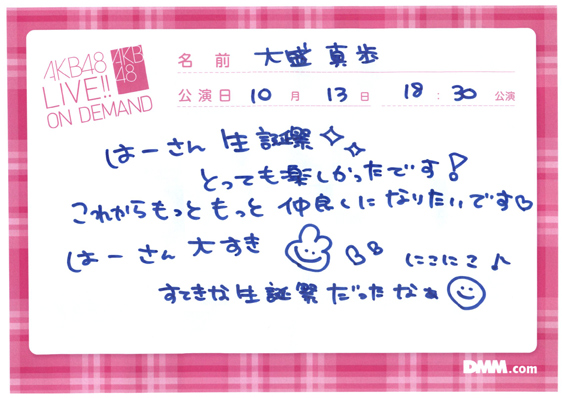 AKB48
LIVE!!
ON DEMAND
AKB
48
名前 大盛真歩
公演日 10月13日 18:30公演
はーさん 生誕祭
とっても楽しかったです!
これからもっともっと仲良しになりたいです♡
はーさん大すき
にこにこ♪
すてきな生誕祭だったなぁ
DMM.com